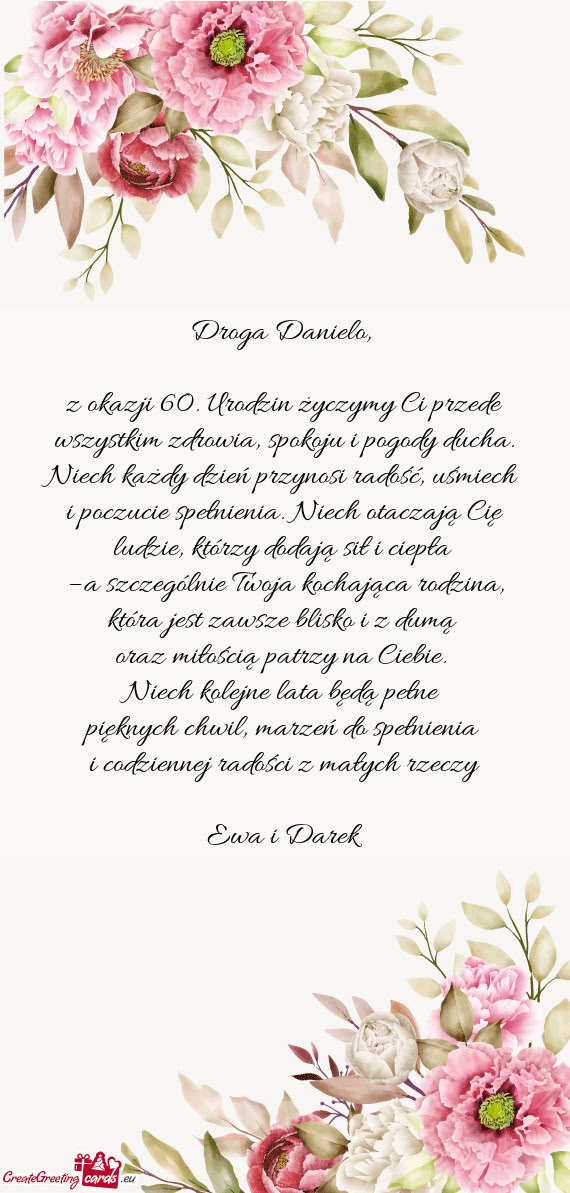 Droga Danielo,
z okazji 60. Urodzin życzymy Ci przede
wszystkim zdrowia, spokoju i pogody ducha.
Niech każdy dzień przynosi radość, uśmiech
i poczucie spełnienia. Niech otaczają Cię
ludzie, którzy dodają sił i ciepła
-a szczególnie Twoja kochająca rodzina,
która jest zawsze blisko i z dumą
oraz miłością patrzy na Ciebie.
Niech kolejne lata będą pełne
pięknych chwil, marzeń do spełnienia
i codziennej radości z małych rzeczy
Ewa i Darek
CreateGreeting cards .eu